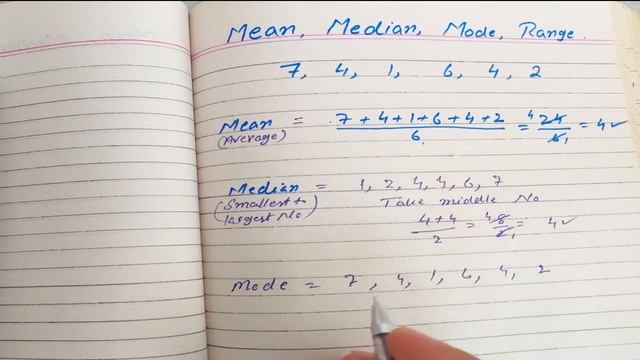 Mean, Median, Mode, Range.
7, 4, 1, 6, 4, 2
Mean = 7+4+1+6+4+2 / 6 = 4 24 / 6 1 = 4 ✓
(Average)
Median = 1, 2, 4, 4, 6, 7
(Smallest to largest No) Take middle No
4+4 / 2 = 4 8 / 2 1 = 4 ✓
Mode = 7, 4, 1, 6, 4, 2